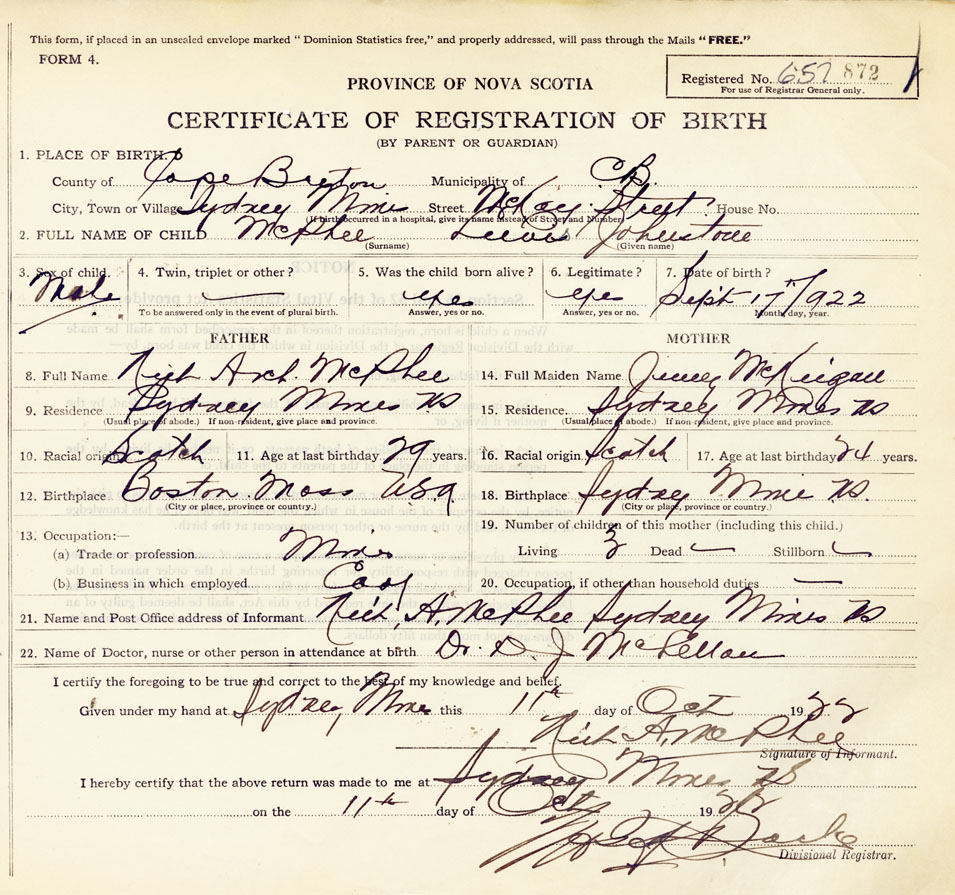 This form, if placed in an unsealed envelope marked “ Dominion Statistics free,” and properly addressed, will pass through the Mails “ FREE.”
FORM 4.
Registered No. 657 872
For use of Registrar General only.
PROVINCE OF NOVA SCOTIA
CERTIFICATE OF REGISTRATION OF BIRTH
(BY PARENT OR GUARDIAN)
1. PLACE OF BIRTH.
County of Cape Breton Municipality of C.B.
City, Town or Village Sydney Mines Street McKay Street House No.
(If birth occurred in a hospital, give its name instead of Street and Number)
2. FULL NAME OF CHILD McPhee Lewis Johnstone
(Surname) (Given name)
3. Sex of child. 4. Twin, triplet or other? 5. Was the child born alive? 6. Legitimate? 7. Date of birth?
Male — yes yes Sept 17 1922
To be answered only in the event of plural birth. Answer, yes or no. Answer, yes or no. Month, day, year.
FATHER MOTHER
8. Full Name Arch. McPhee 14. Full Maiden Name
9. Residence Sydney Mines NS 15. Residence. Sydney Mines NS
(Usual place of abode.) If non-resident, give place and province. (Usual place of abode.) If non-resident, give place and province.
10. Racial origin Scotch 11. Age at last birthday 29 years. 16. Racial origin Scotch 17. Age at last birthday 24 years.
12. Birthplace Boston Mass USA 18. Birthplace Sydney Mine NS
(City or place, province or country.) (City or place, province or country.)
13. Occupation:— 19. Number of children of this mother (including this child.)
(a) Trade or profession Living 3 Dead — Stillborn —
(b) Business in which employed Coal 20. Occupation, if other than household duties —
21. Name and Post Office address of Informant A. McPhee Sydney Mines NS
22. Name of Doctor, nurse or other person in attendance at birth Dr. D. J McLellan
I certify the foregoing to be true and correct to the best of my knowledge and belief.
Given under my hand at Sydney Mines this 11th day of Oct 1922
A. McPhee
Signature of Informant.
I hereby certify that the above return was made to me at Sydney Mines NS
on the 11th day of Oct 1922
Divisional Registrar.